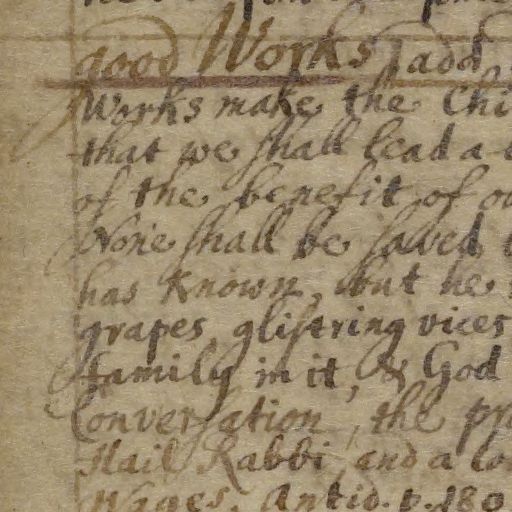 good Works I add
Works make the Chi
that we shall lead a
of the benefit of
None shall be saved
has known, but he
grapes, glistring vices
family in it, & God
Conversation, the pr
Hail Rabbi, and a
Wages. Antid. p. 180